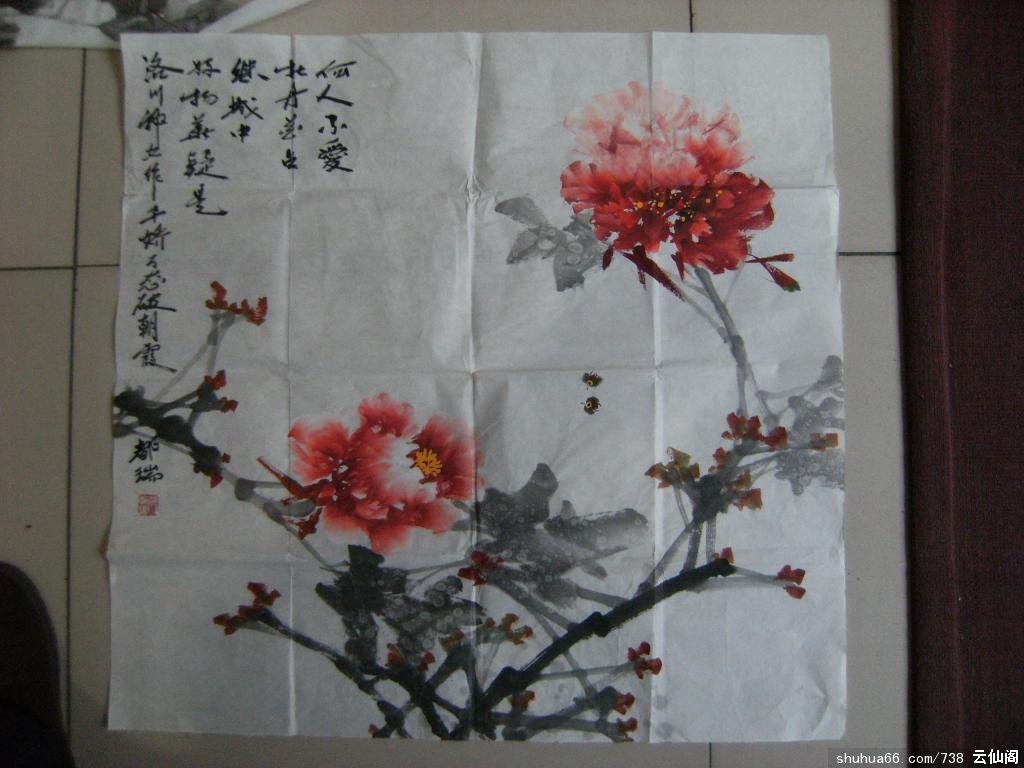 何人不愛
牡丹花占
断城中
好物華疑是
洛川神女作千嬌万态破朝霞
都瑞
shuhua66.com/738 云仙阁